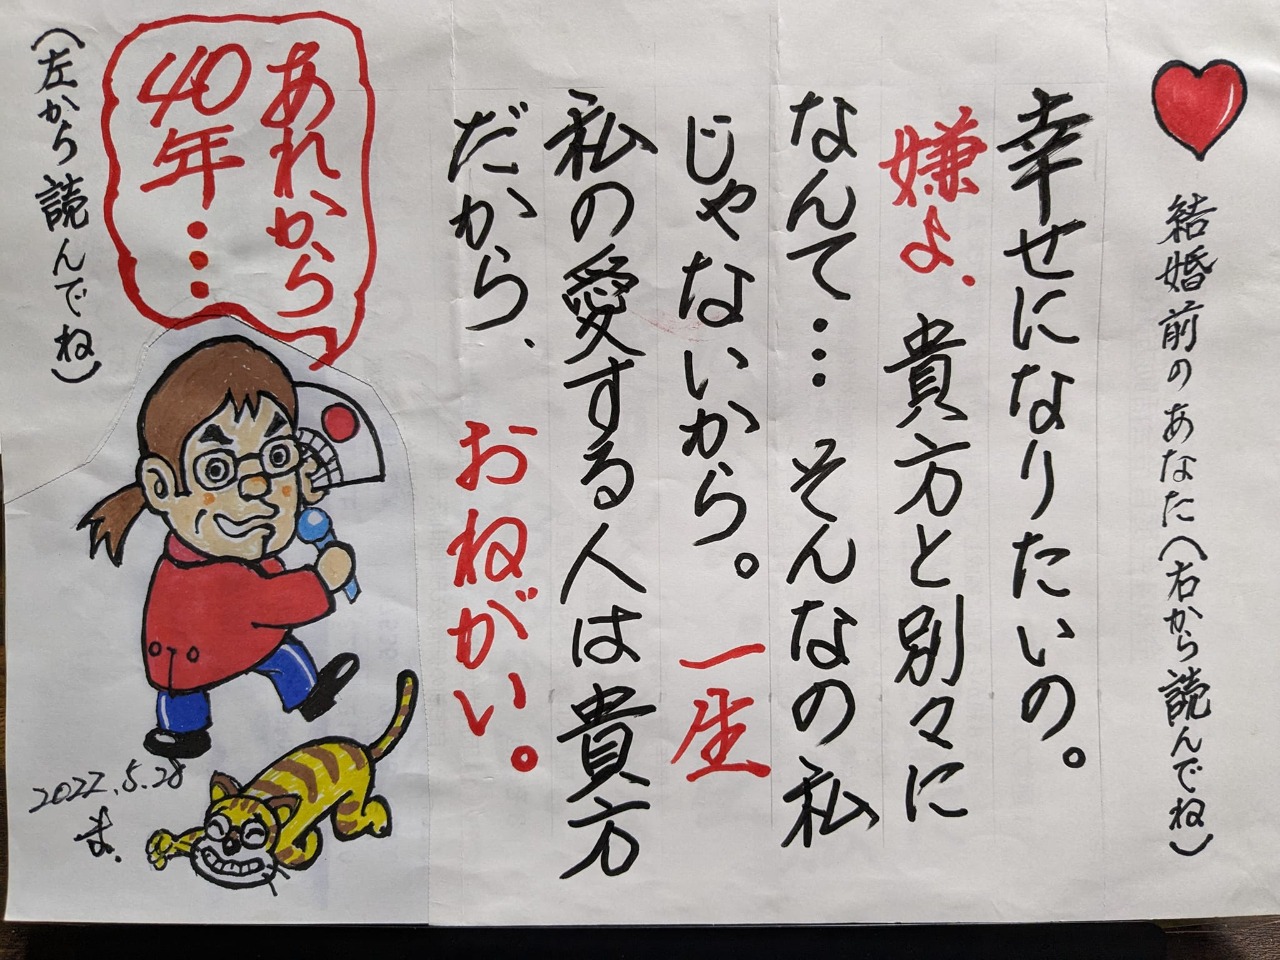 結婚前のあなた(右から読んでね)
幸せになりたいの。
嫌よ、貴方と別々に
なんて… そんなの私
じゃないから。一生
私の愛する人は貴方
だから、おねがい。
あれから
40年…
(左から読んでね)
2022.5.28
ま.